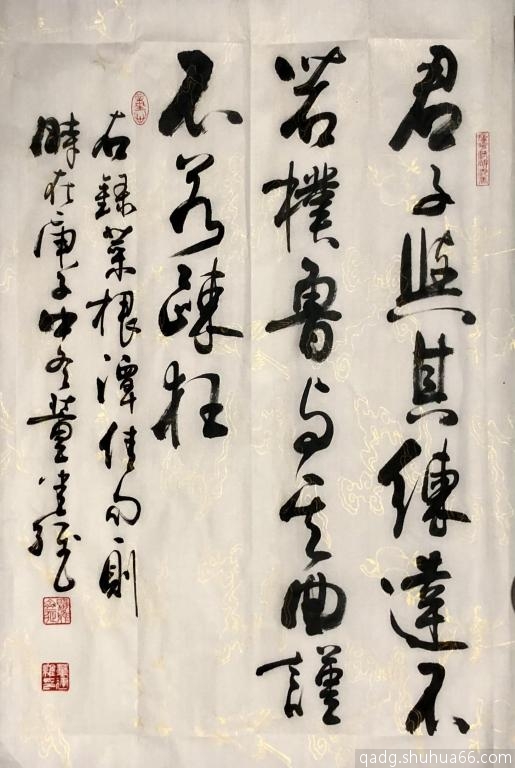 君子與其練達不
若樸魯与其曲謹
不若踈狂
右録菜根潭佳句一則
時在庚子中冬董
qadg.shuhua66.com